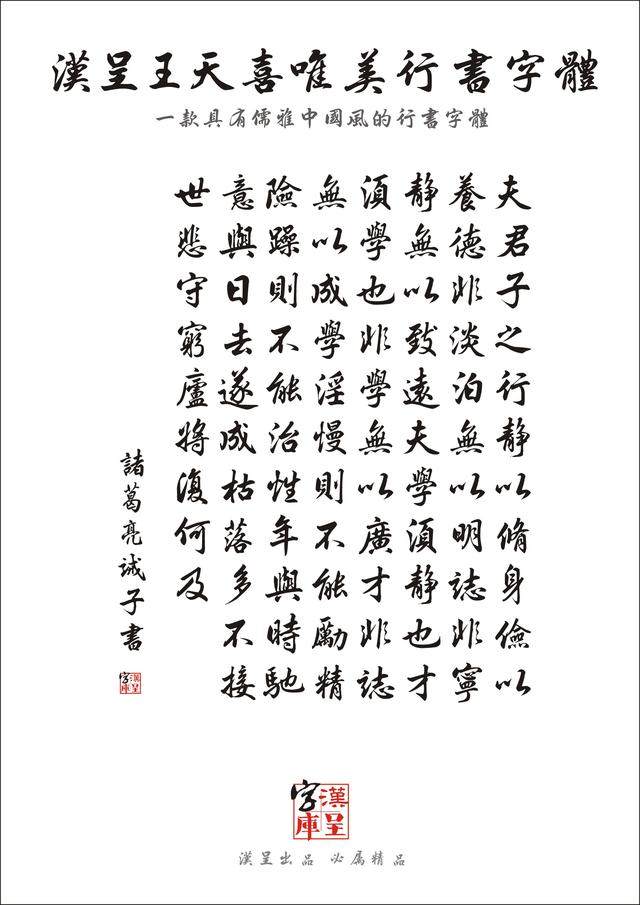 漢呈王天喜唯美行書字體
一款具有儒雅中國風的行書字體
夫君子之行静以脩身儉以
養德非淡泊無以明誌非寧
静無以致遠夫學須静也才
須學也非學無以廣才非誌
無以成學淫慢則不能勵精
險躁則不能治性年與時馳
意與日去遂成枯落多不接
世悲守窮廬將復何及
諸葛亮誡子書
漢呈
字庫
漢呈
字庫
漢呈出品 必属精品